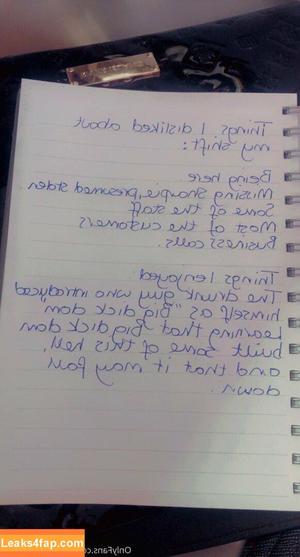 Things I disliked about
my shift:
Being here
Missing sharpie, presumed stolen
Some of the staff
Most of the customers
Business calls.
Things I enjoyed
The drunk guy who introduced
himself as "Big dick dan"
Learning that Big dick dan
built some of this hell,
and that it may fall
down.
Leaks4fap.com